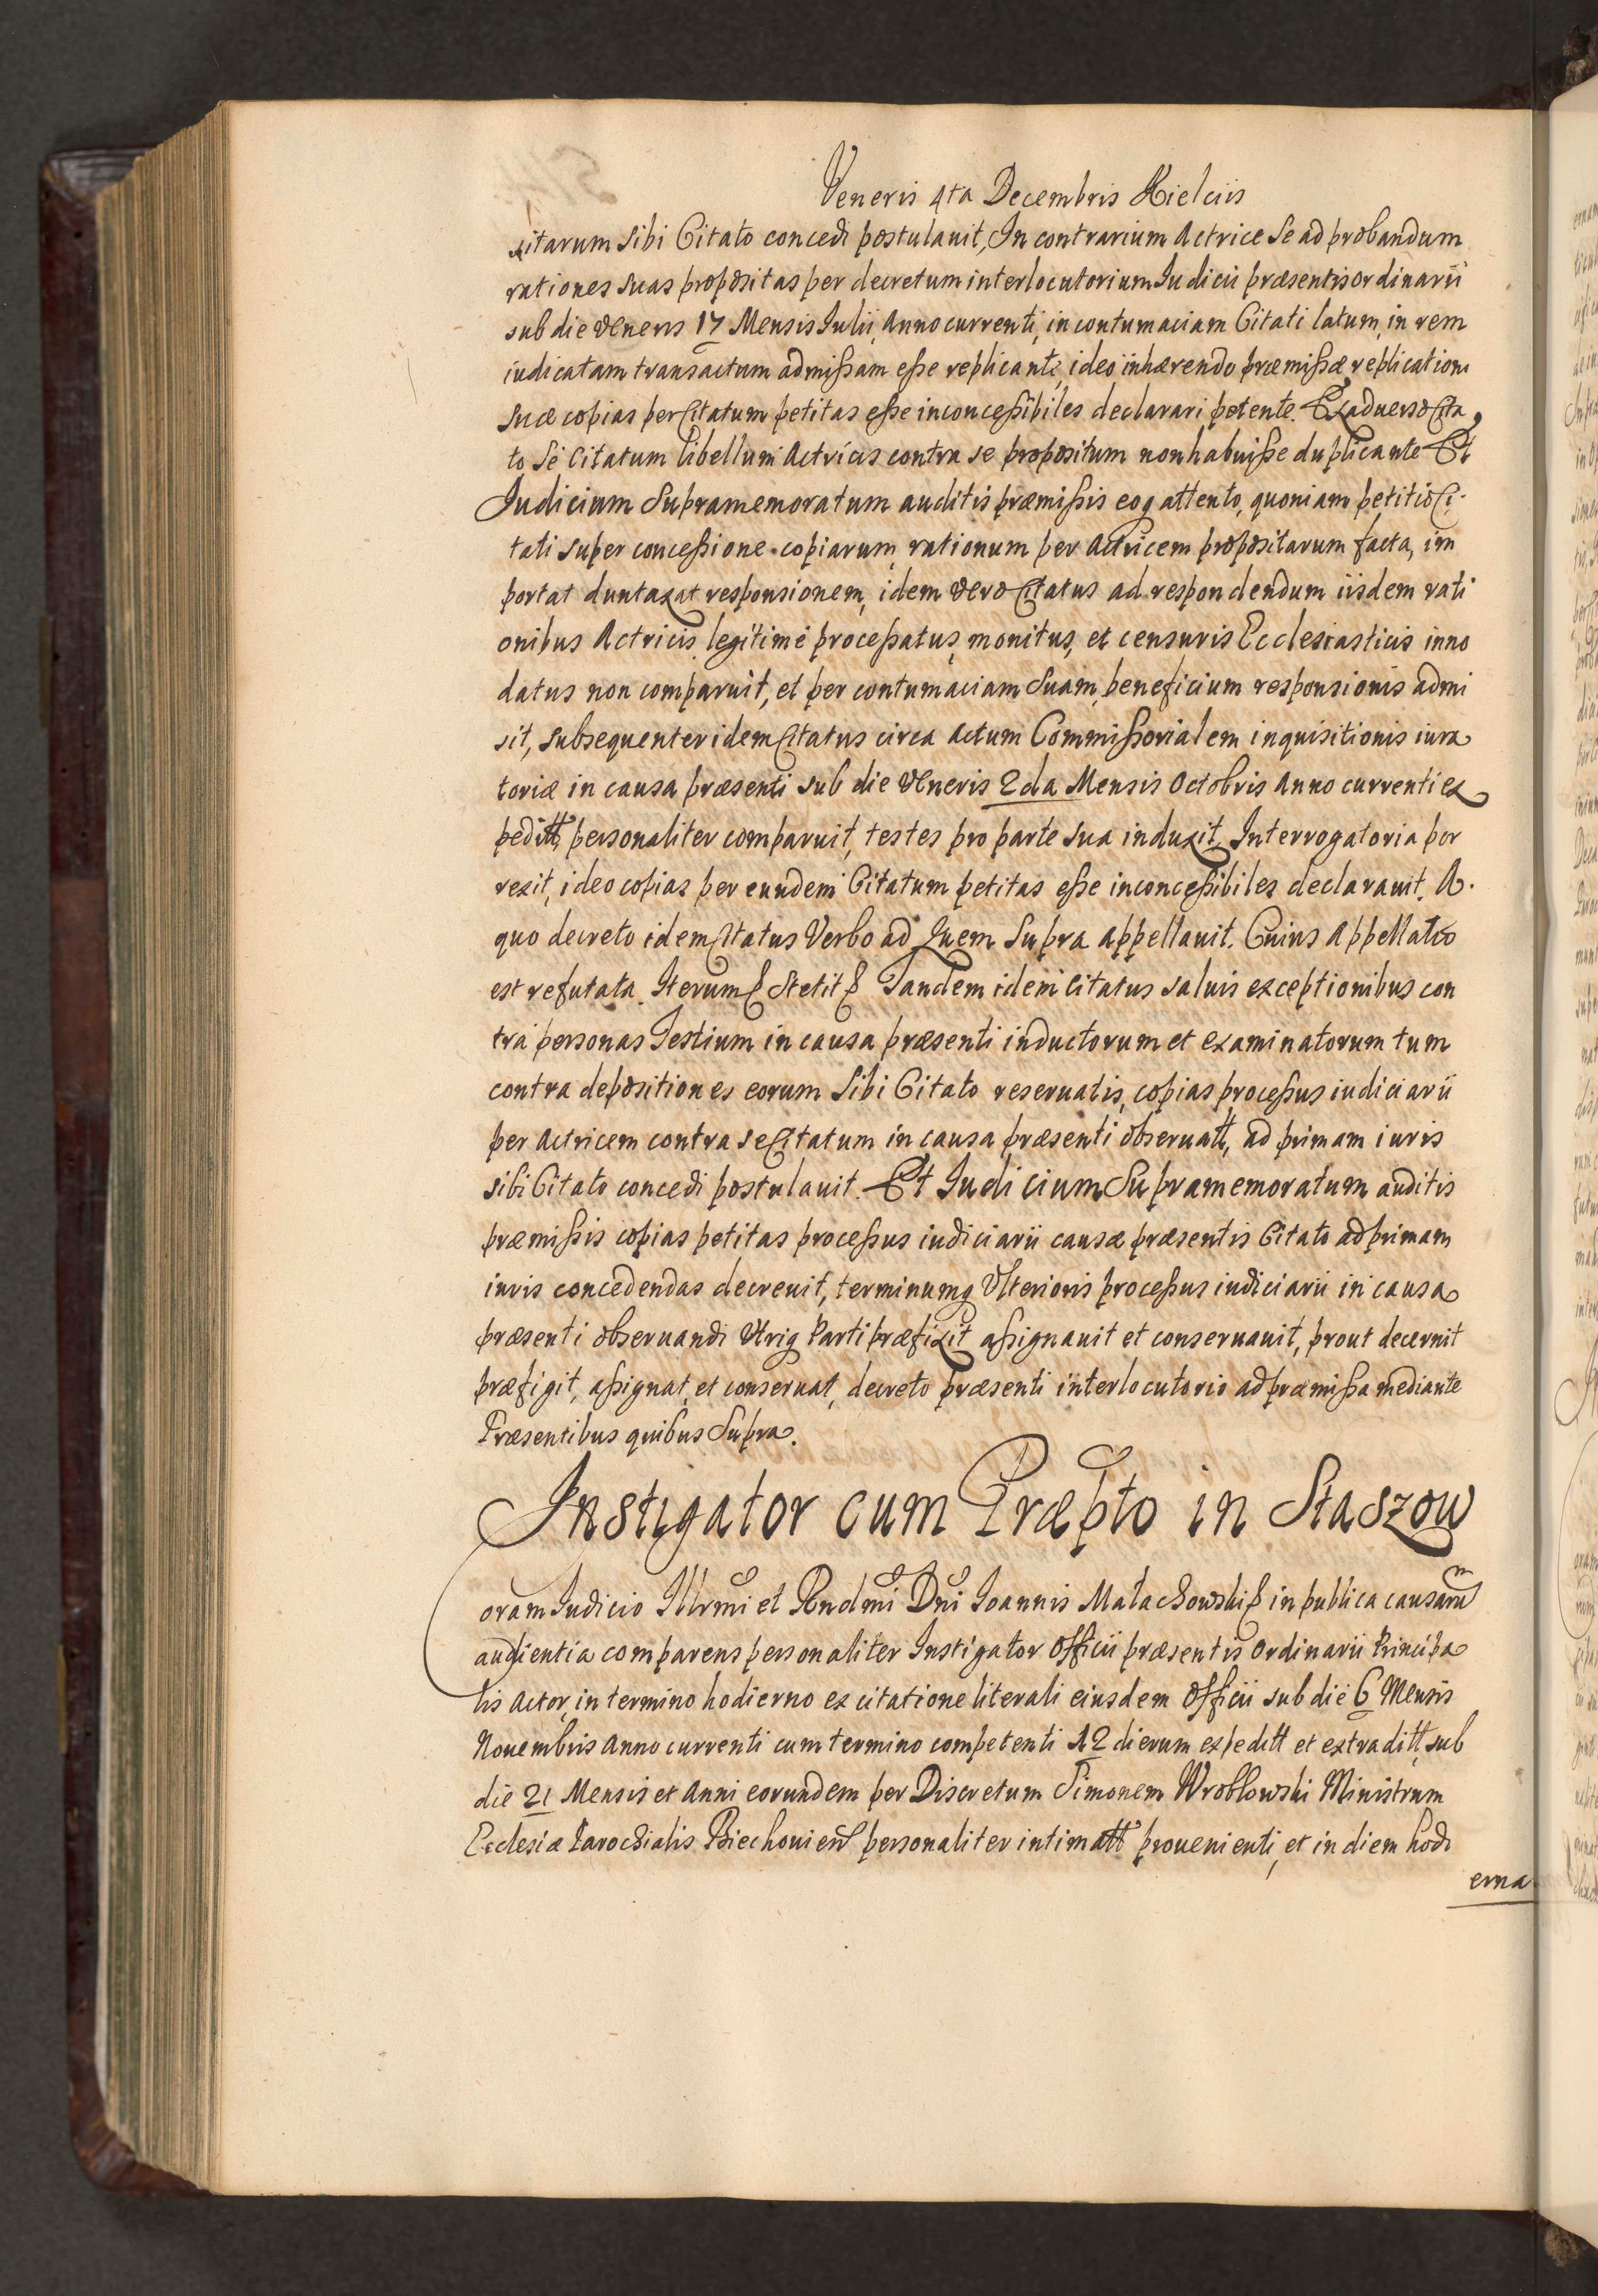 Veneris 4ta Decembris Kielciis
sitarum sibi Citato concedi postulauit, In contrarium Actrice se ad probandum
rationes suas propositas per decretum interlocutorium Iudicii præsentis ordinarii
sub die Veneris 17 Mensis Iulii, Anno currenti, in contumaciam Citati latum, in rem
iudicatam transactum admissam esse replicante, ideo inhærendo præmissæ replicationi
suæ copias per Citatum petitas esse inconcessibiles declarari petente. Ex aduerso Cita
to se citatum libellum Actricis contra se propositum non habuisse duplicante Et
Iudicium Supramemoratum auditis præmissis eoq attento, quoniam petitio Ci
tati super concessione copiarum, rationum per Actricem propositarum facta, im
portat duntaxat responsionem, idem vero Citatus ad respondendum iisdem rati
onibus Actricis legitime processatus, monitus, et censuris Ecclesiasticis inno
datus non comparuit, et per contumaciam suam, beneficium responsionis admi
sit, subsequenter idem Citatus circa actum Commissorialem inquisitionis iura
toriæ in causa præsenti sub die Veneris 2da Mensis Octobris Anno currenti ex
peditt, personaliter comparuit, testes pro parte sua induxit, Interrogatoria por
rexit, ideo copias per eundem Citatum petitas esse inconcessibiles declarauit. A
quo decreto idem Citatus Verbo ad Quem Supra appellauit. Cuius Appellatio
est refutata. Iterum Stetit Tandem idem citatus saluis exceptionibus con
tra personas Testium in causa præsenti inductorum et examinatorum tum
contra depositiones eorum sibi Citato reseruatis, copias processus iudiciarii
per Actricem contra se Citatum in causa præsenti obseruatt, ad primam iuris
sibi Citato concedi postulauit. Et Iudicium Supramemoratum auditis
præmissis copias petitas processus iudiciarii causæ præsentis Citato ad primam
iuris concedendas decreuit, terminumq Vlterioris processus iudiciarii in causa
præsenti obseruandi Vtriq Parti præfixit assignauit et conseruauit, prout decernit
præfigit, assignat, et conseruat, decreto præsenti interlocutorio ad præmissa mediante
Præsentibus quibus Supra.
Instigator cum Præpto in Staszow
Coram Iudicio Illrmi et Rndmi Dni Ioannis Małachowski in publica causarum
audientia comparens personaliter Instigator Officii præsentis Ordinarii Principa
lis Actor, in termino hodierno ex citatione literali eiusdem Officii sub die 6 Mensis
Nouembris Anno currenti cum termino competenti 12 dierum expeditt et extraditt, sub
die 21 Mensis et Anni eorundem per Discretum Simonem Wroblowski Ministrum
Ecclesiæ Parochialis Biechouien personaliter intimatt prouenienti, et in diem hodi
erna